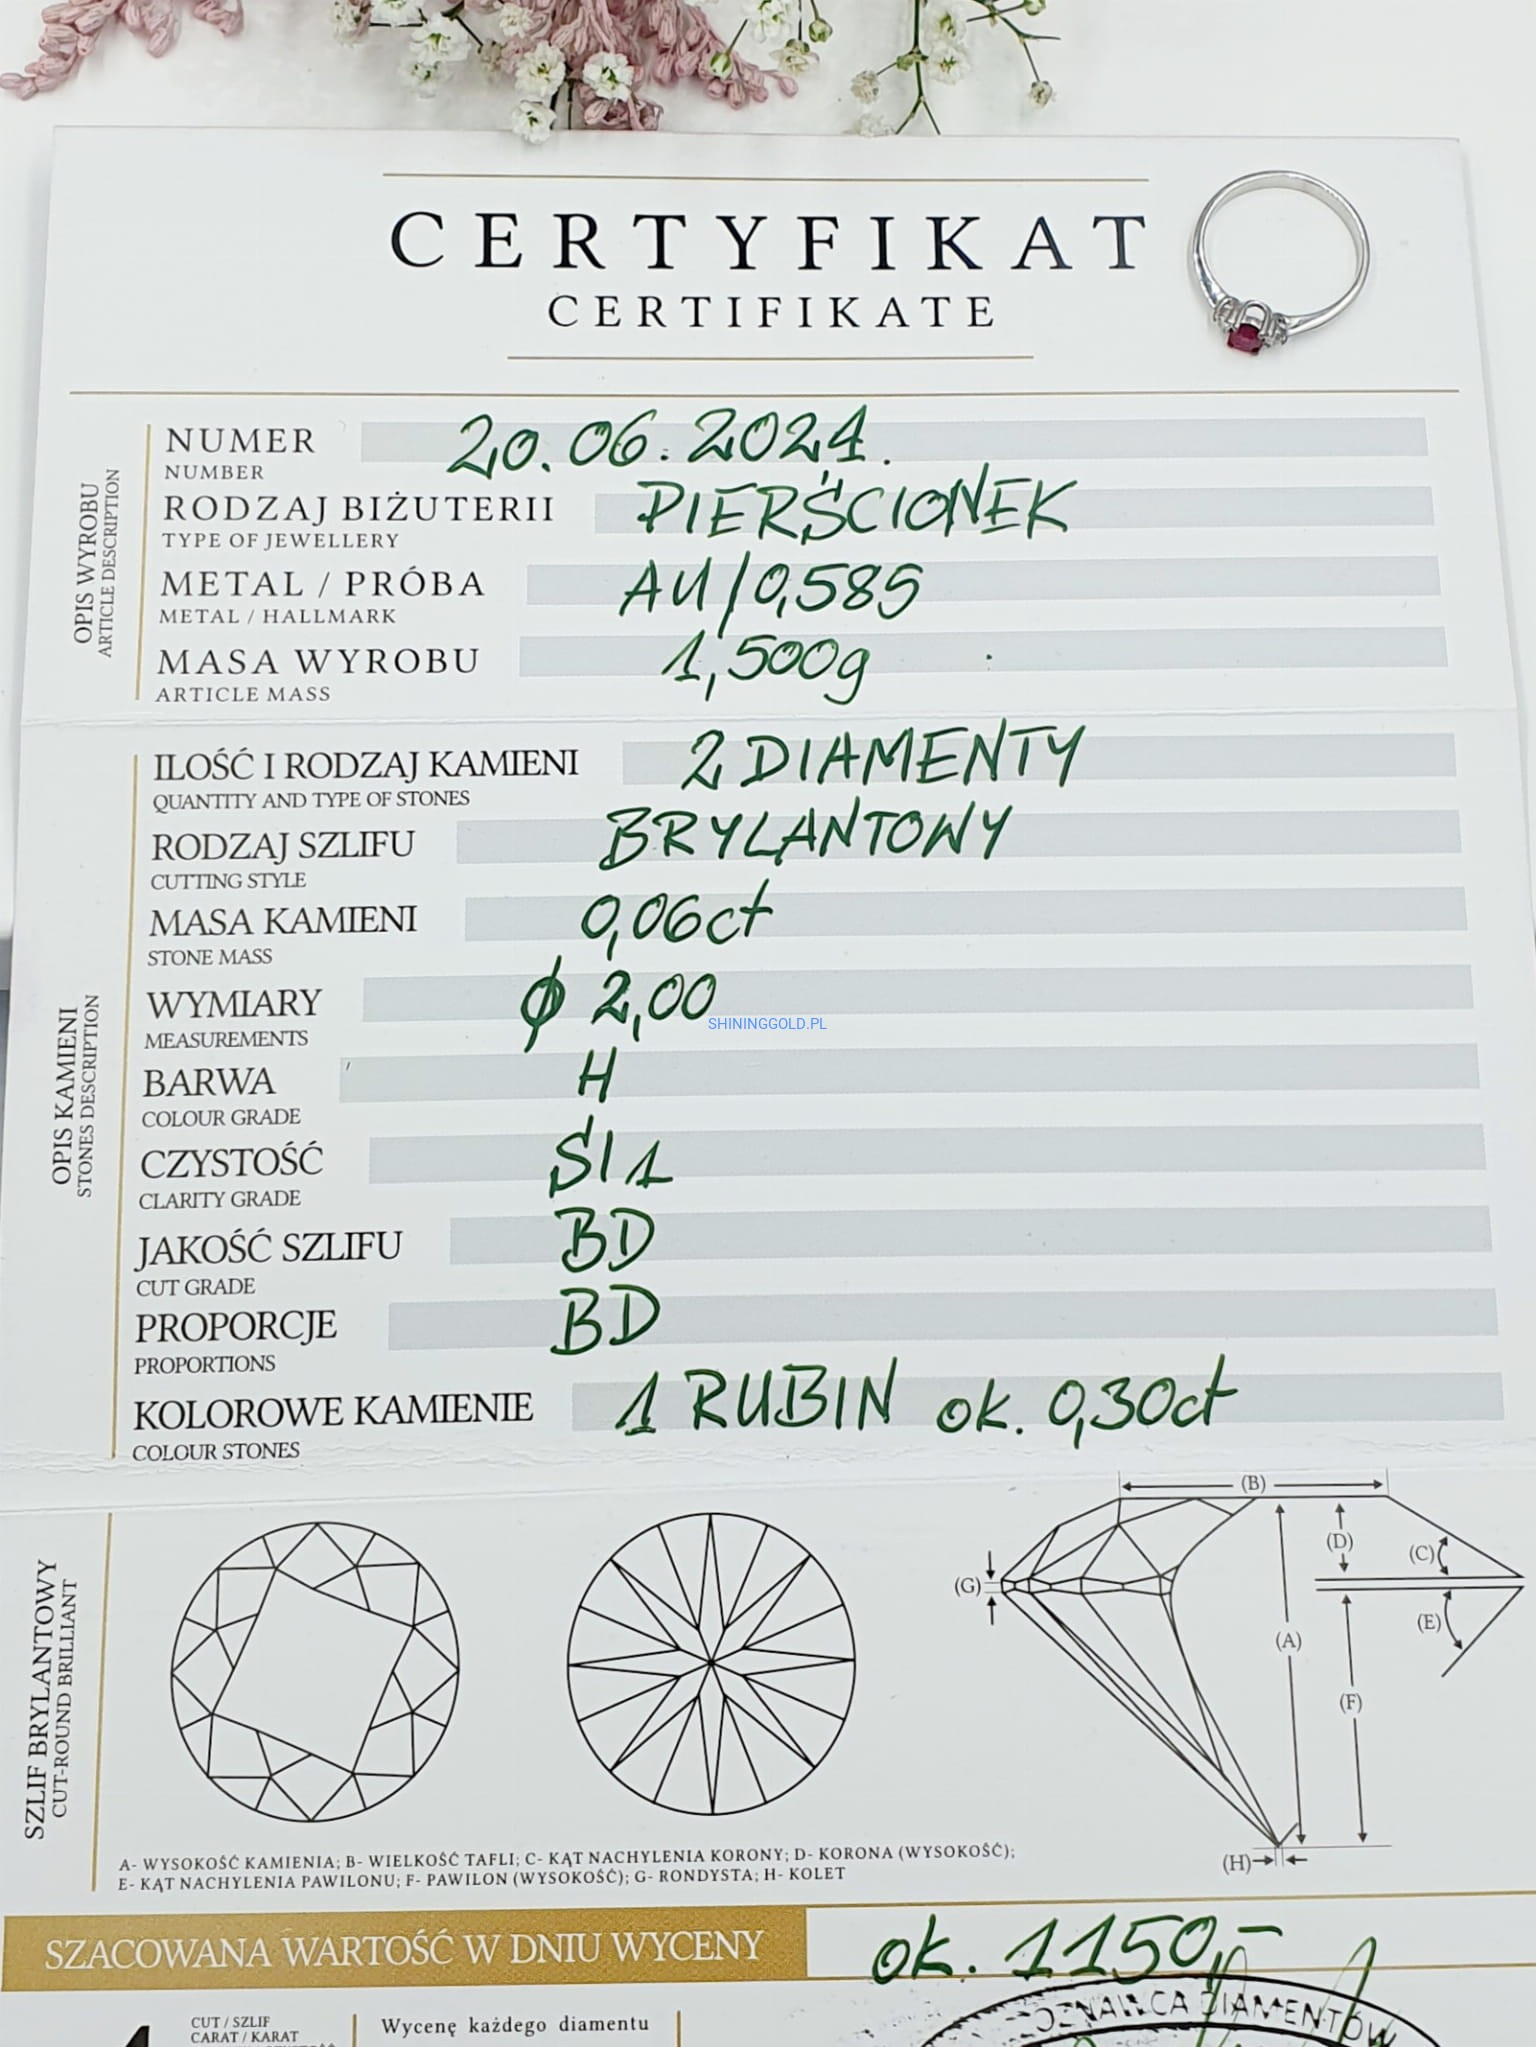 CERTYFIKAT
CERTIFIKATE
OPIS WYROBU
ARTICLE DESCRIPTION
NUMER 20.06.2024.
NUMBER
RODZAJ BIŻUTERII PIERŚCIONEK
TYPE OF JEWELLERY
METAL / PRÓBA AU/0,585
METAL / HALLMARK
MASA WYROBU 1,500g
ARTICLE MASS
OPIS KAMIENI
STONES DESCRIPTION
ILOŚĆ I RODZAJ KAMIENI 2 DIAMENTY
QUANTITY AND TYPE OF STONES
RODZAJ SZLIFU BRYLANTOWY
CUTTING STYLE
MASA KAMIENI 0,06ct
STONE MASS
WYMIARY ϕ 2,00
SHININGGOLD.PL
MEASUREMENTS
BARWA H
COLOUR GRADE
CZYSTOŚĆ SI1
CLARITY GRADE
JAKOŚĆ SZLIFU BD
CUT GRADE
PROPORCJE BD
PROPORTIONS
KOLOROWE KAMIENIE 1 RUBIN ok. 0,30ct
COLOUR STONES
SZLIF BRYLANTOWY
CUT-ROUND BRILLIANT
(B)
(D)
(C)
(G)
(E)
(A)
(F)
(H)
A- WYSOKOŚĆ KAMIENIA; B- WIELKOŚĆ TAFLI; C- KĄT NACHYLENIA KORONY; D- KORONA (WYSOKOŚĆ);
E- KĄT NACHYLENIA PAWILONU; F- PAWILON (WYSOKOŚĆ); G- RONDYSTA; H- KOLET
SZACOWANA WARTOŚĆ W DNIU WYCENY ok. 1150,-
CUT / SZLIF
CARAT / KARAT
Wycenę każdego diamentu
DIAMENTÓW